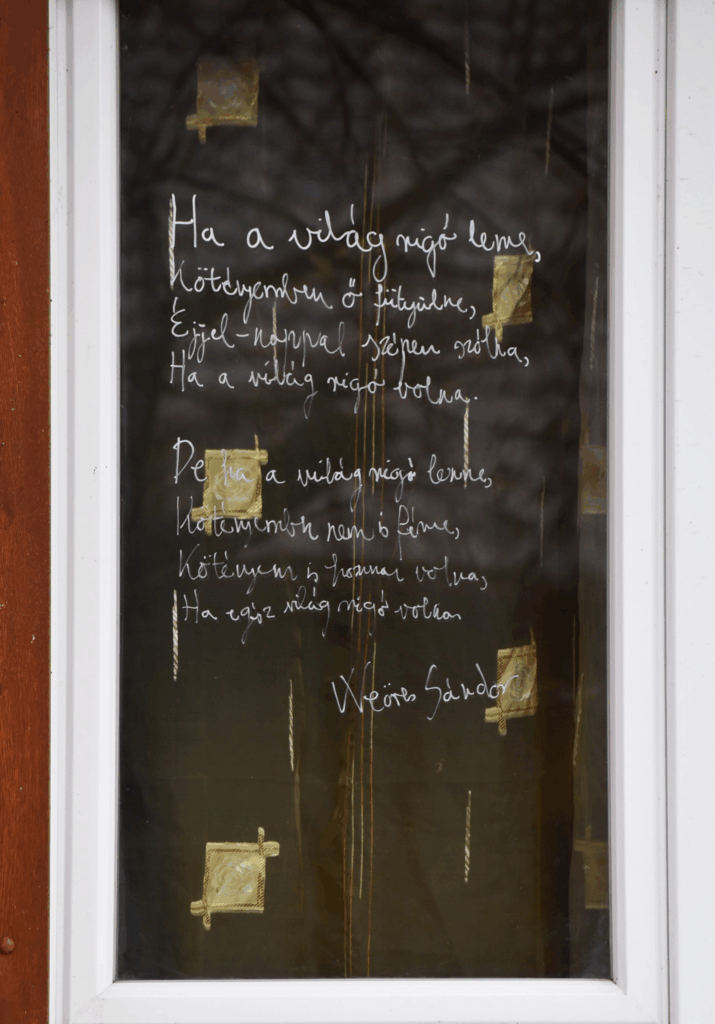 Ha a világ rigó lenne,
Kötényemben ő fütyülne,
Éjjel-nappal szépen szólna,
Ha a világ rigó volna.
De ha a világ rigó lenne,
Kötényembe nem is férne,
Kötényem is honnan volna,
Ha egész világ rigó volna.
Weöres Sándor